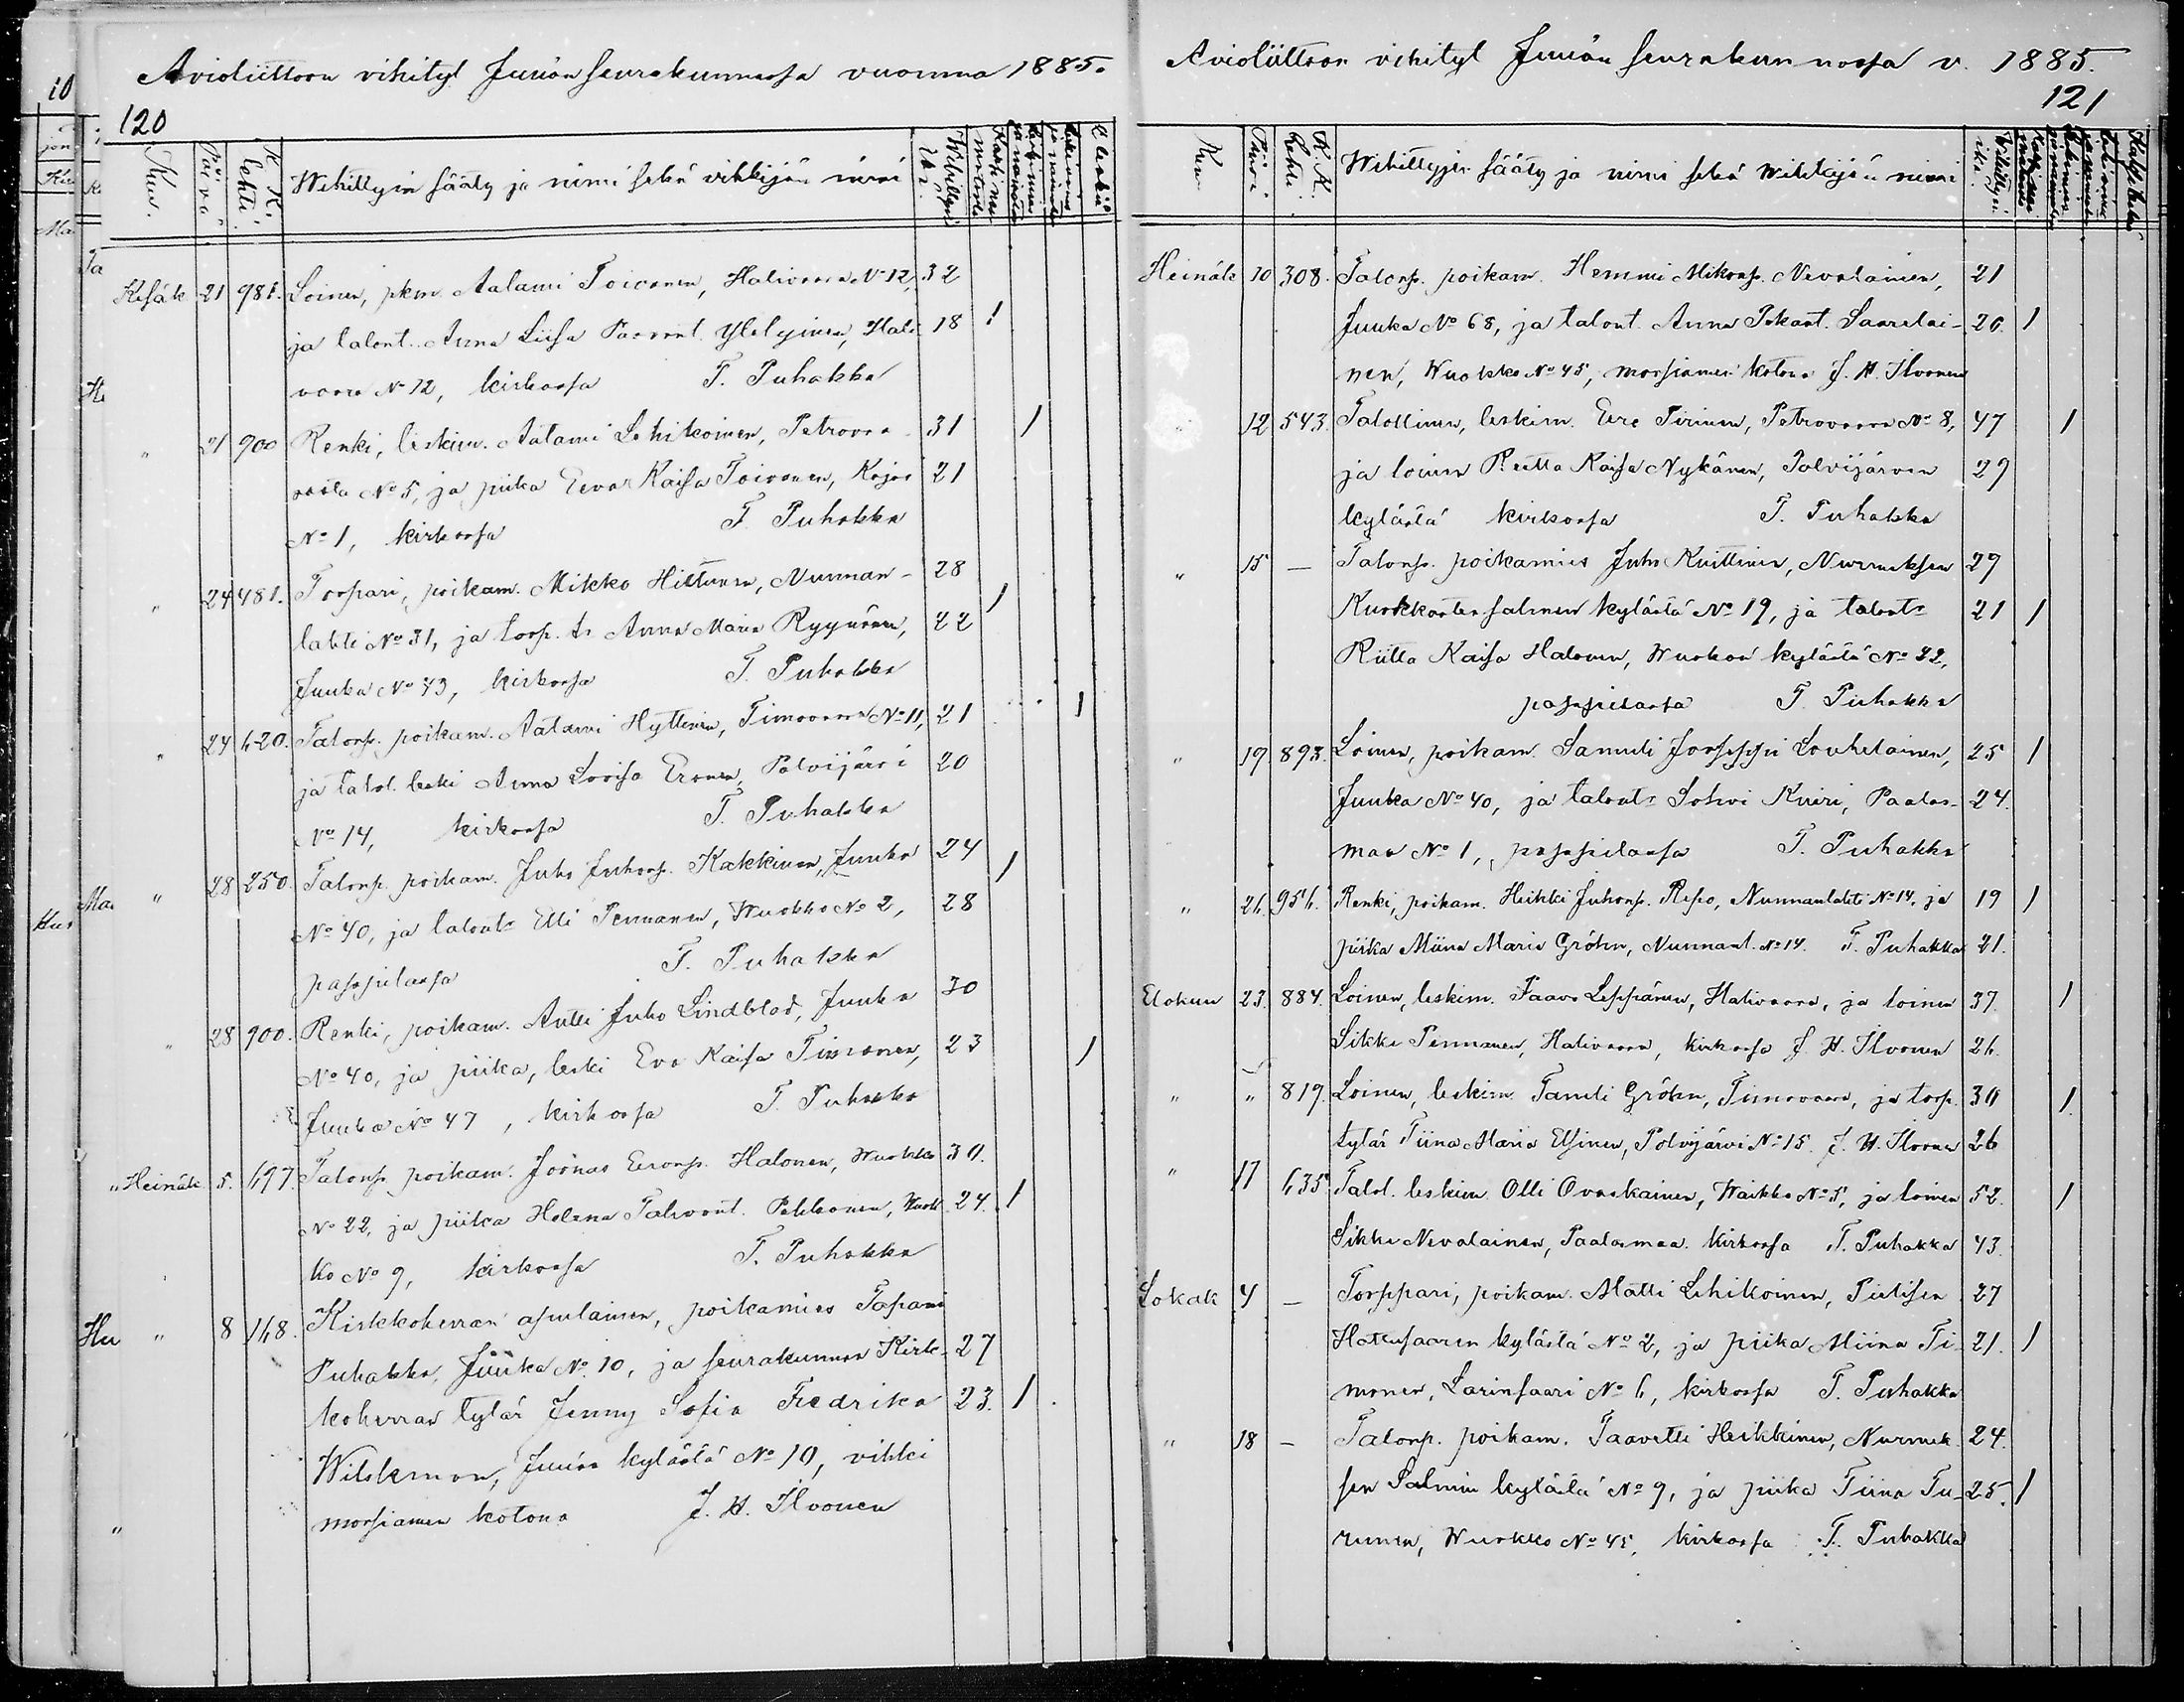 Avioliittoon vihityt Juuan seurakunnassa vuonna 1885.
120
Kuu. Päivä K. K. lehti. Wihittyin sääty ja nimi sekä vihkijän nimi Wihittyin ikä.
Kesäk 21 981. Loinen, pkm. Aatami Toivanen, Halivaara No 12, 32
ja talont. Anna Liisa Paavont. Ylelyinen, Hali- 18 1
vaara No 12, kirkossa T. Puhakka
" 21 900 Renki, leskim. Aatami Lehikoinen, Petrovaa- 31 1
rasta No 5, ja piika Eeva Kaisa Toivanen, Kajoo 21
No 1, kirkossa T. Puhakka
" 24 481. Torpari, poikam. Mikko Hiltunen, Nunnan- 28 1
lahti No 31, ja torp. tr Anna Maria Ryynänen, 22
Juuka No 43, kirkossa T. Puhakka
" 24 620. Talonp. poikam. Aatami Hyttinen, Timovaara No 11, 21 1
ja talol. leski Anna Loviisa Eronen, Polvijärvi 20
No 14, kirkossa T. Puhakka
" 28 250. Talonp. poikam. Juho Juhonp. Kakkinen, Juuka 24 1
No 40, ja talontr Elli Pennanen, Wuokko No 2, 28
pappilassa T. Puhakka
" 28 900. Renki, poikam. Antti Juho Lindblad, Juuka 30
No 40, ja piika, leski Eva Kaisa Timonen, 23 1
Juuka No 47, kirkossa T. Puhakka
" Heinäk 5. 697. Talonp. poikam. Joonas Eeronp. Halonen, Wuokko 30.
No 22, ja piika Helena Pahvont. Pekkonen, Wuok- 24. 1
ko No 9, kirkossa T. Puhakka
" 8 168. Kirkkoherran apulainen, poikamies Tapani
Puhakka, Juuka No 10, ja seurakunnan Kirk- 27
koherran tytär Jenny Sofia Fredrika 23. 1
Wilskman, Juuan kylästä No 10, vihki
morsiamen kotona J. H. Ilvonen
Avioliittoon vihityt Juuan seurakunnassa v. 1885.
121
Kuu Päivä K. K. lehti. Wihittyjen sääty ja nimi sekä wihkijän nimi Wihittyin ikä.
Heinäk 10 308. Talonp. poikam. Hemmi Mikonp. Nevalainen, 21
Juuka No 68, ja talont. Anna Pekant. Saarelai- 20. 1
nen, Wuokko No 45, morsiamen kotona J. H. Ilvonen
" 12 543. Talollinen, leskim. Eero Pirinen, Petrovaara No 8, 47 1
ja loinen Reetta Kaisa Nykänen, Polvijärven 29
kylästä kirkossa T. Puhakka
" 15 — Talonp. poikamies Juho Kuittinen, Nurmeksen 29
Kuokkasten salmen kylästä No 19, ja talontr 21 1
Riitta Kaisa Halonen, Wuokon kylästä No 22,
pappilassa T. Puhakka
" 19 893. Loinen, poikam. Samuli Jooseppi Louhelainen, 25 1
Juuka No 40, ja talontr Sohvi Kuiri, Paalas- 24.
maa No 1, pappilassa T. Puhakka
" 26. 956. Renki, poikam. Heikki Juhonp. Repo, Nunnanlahti No 14, ja 19 1
piika Miina Maria Gröhn, Nunnanl. No 14. T. Puhakka 21.
Elokuu 23. 884. Loinen, leskim. Paavo Leppänen, Halivaara, ja loinen 37. 1
Sikke Pennanen, Halivaara, kirkossa J. H. Ilvonen 26.
" " 819. Loinen, leskim. Taneli Gröhn, Timovaara, ja torp. 30 1
tytär Tiina Maria Elsinen, Polvijärvi No 15. J. H. Ilvonen 26
" 17 635. Talol. leskim. Olli Ovaskainen, Waikko No 5, ja loinen 52. 1
Sikke Nevalainen, Paalasmaa. kirkossa T. Puhakka 43.
Lokak 4 — Torppari, poikam. Matti Lehikoinen, Pielisen 27
Hattusaaren kylästä No 2, ja piika Miina Ti- 21. 1
monen, Larinsaari No 6, kirkossa T. Puhakka
" 18 — Talonp. poikam. Taavetti Heikkinen, Nurmek- 24.
sen Palmin kylästä No 9, ja piika Tiina Tu- 25. 1
runen, Wuokko No 45, kirkossa T. Puhakka